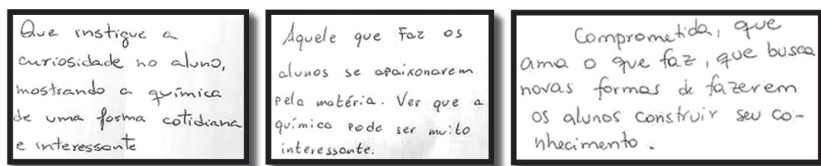 Que instigue a
curiosidade no aluno,
mostrando a química
de uma forma cotidiana
e interessante
Aquele que faz os
alunos se apaixonarem
pela matéria. Ver que a
química pode ser muito
interessante.
Comprometida, que
ama o que faz, que busca
novas formas de fazerem
os alunos construir seu co-
nhecimento.